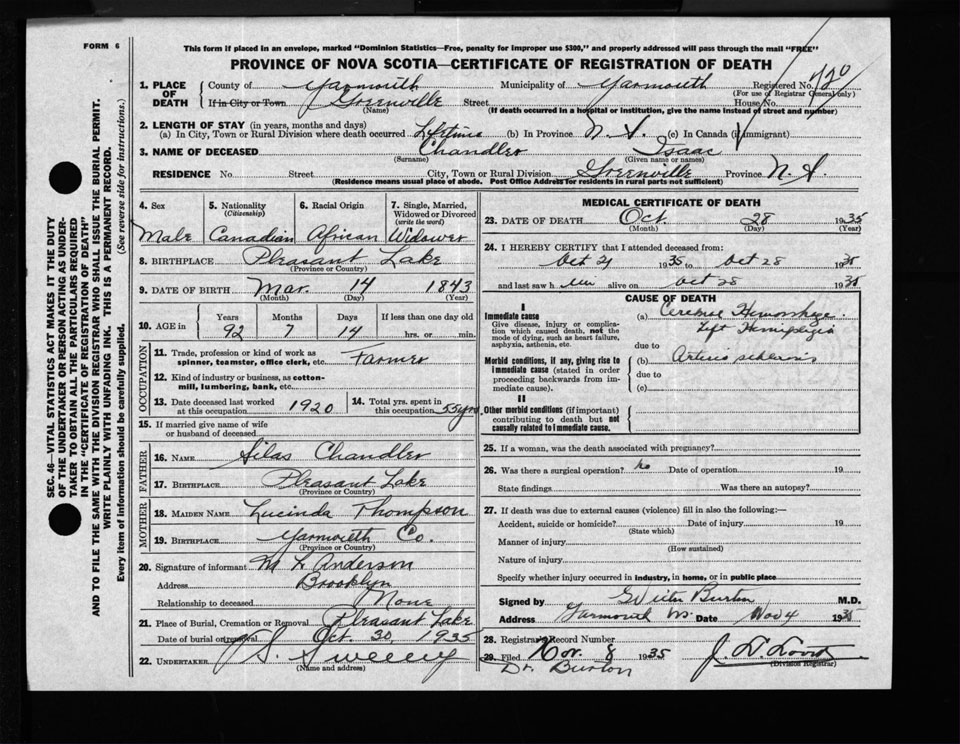 FORM 6
This form if placed in an envelope, marked "Dominion Statistics—Free, penalty for improper use $300," and properly addressed will pass through the mail "FREE"
PROVINCE OF NOVA SCOTIA—CERTIFICATE OF REGISTRATION OF DEATH
1. PLACE OF DEATH County of Yarmouth Municipality of Yarmouth Registered No. 420
(For use of Registrar General only)
If in City or Town Greenville Street House No.
(Name) (If death occurred in a hospital or institution, give the name instead of street and number)
2. LENGTH OF STAY (in years, months and days)
(a) In City, Town or Rural Division where death occurred Lifetime (b) In Province N.S. (c) In Canada (if immigrant)
3. NAME OF DECEASED Chandler Isaac
(Surname) (Given name or names)
RESIDENCE No. Street City, Town or Rural Division Greenville Province N.S.
(Residence means usual place of abode. Post Office Address for residents in rural parts not sufficient)
4. Sex 5. Nationality (Citizenship) 6. Racial Origin 7. Single, Married, Widowed or Divorced (write the word)
Male Canadian African Widower
8. BIRTHPLACE Pleasant Lake
(Province or Country)
9. DATE OF BIRTH Mar. 14 1843
(Month) (Day) (Year)
10. AGE in Years Months Days If less than one day old
92 7 14 hrs. or min.
OCCUPATION
11. Trade, profession or kind of work as spinner, teamster, office clerk, etc. Farmer
12. Kind of industry or business, as cotton-mill, lumbering, bank, etc.
13. Date deceased last worked at this occupation 1920 14. Total yrs. spent in this occupation 55 yrs
15. If married give name of wife or husband of deceased
FATHER
16. NAME Silas Chandler
17. BIRTHPLACE Pleasant Lake
(Province or Country)
MOTHER
18. MAIDEN NAME Lucinda Thompson
19. BIRTHPLACE Yarmouth Co.
(Province or Country)
20. Signature of informant M L Anderson
Address Brooklyn
Relationship to deceased None
21. Place of Burial, Cremation or Removal Pleasant Lake
Date of burial or removal Oct. 30, 1935
22. UNDERTAKER S. Sweeny
(Name and address)
MEDICAL CERTIFICATE OF DEATH
23. DATE OF DEATH Oct. 28 1935
(Month) (Day) (Year)
24. I HEREBY CERTIFY that I attended deceased from:
Oct 21 1935 to Oct 28 1935
and last saw him alive on Oct 28 1935
CAUSE OF DEATH
I
Immediate cause
Give disease, injury or complication which caused death, not the mode of dying, such as heart failure, asphyxia, asthenia, etc.
(a) Cerebral Hemorrhage
Left Hemiplegia
due to
Morbid conditions, if any, giving rise to immediate cause (stated in order proceeding backwards from immediate cause).
(b) Arterio sclerosis
due to
(c)
II
Other morbid conditions (if important) contributing to death but not causally related to immediate cause.
25. If a woman, was the death associated with pregnancy?
26. Was there a surgical operation? No Date of operation 19
State findings Was there an autopsy?
27. If death was due to external causes (violence) fill in also the following:—
Accident, suicide or homicide? Date of injury 19
(State which)
Manner of injury
(How sustained)
Nature of injury
Specify whether injury occurred in industry, in home, or in public place
Signed by Burton M.D.
Address Yarmouth N.S. Date Nov 4 1935
28. Registrar's Record Number
29. Filed Nov. 8 1935
(Division Registrar)
Dr. Burton
SEC. 46—VITAL STATISTICS ACT MAKES IT THE DUTY
OF THE UNDERTAKER OR PERSON ACTING AS UNDER-
TAKER TO OBTAIN ALL THE PARTICULARS REQUIRED
IN THE "CERTIFICATE OF REGISTRATION OF DEATH"
AND TO FILE THE SAME WITH THE DIVISION REGISTRAR WHO SHALL ISSUE THE BURIAL PERMIT.
WRITE PLAINLY WITH UNFADING INK. THIS IS A PERMANENT RECORD.
Every item of information should be carefully supplied. (See reverse side for instructions.)